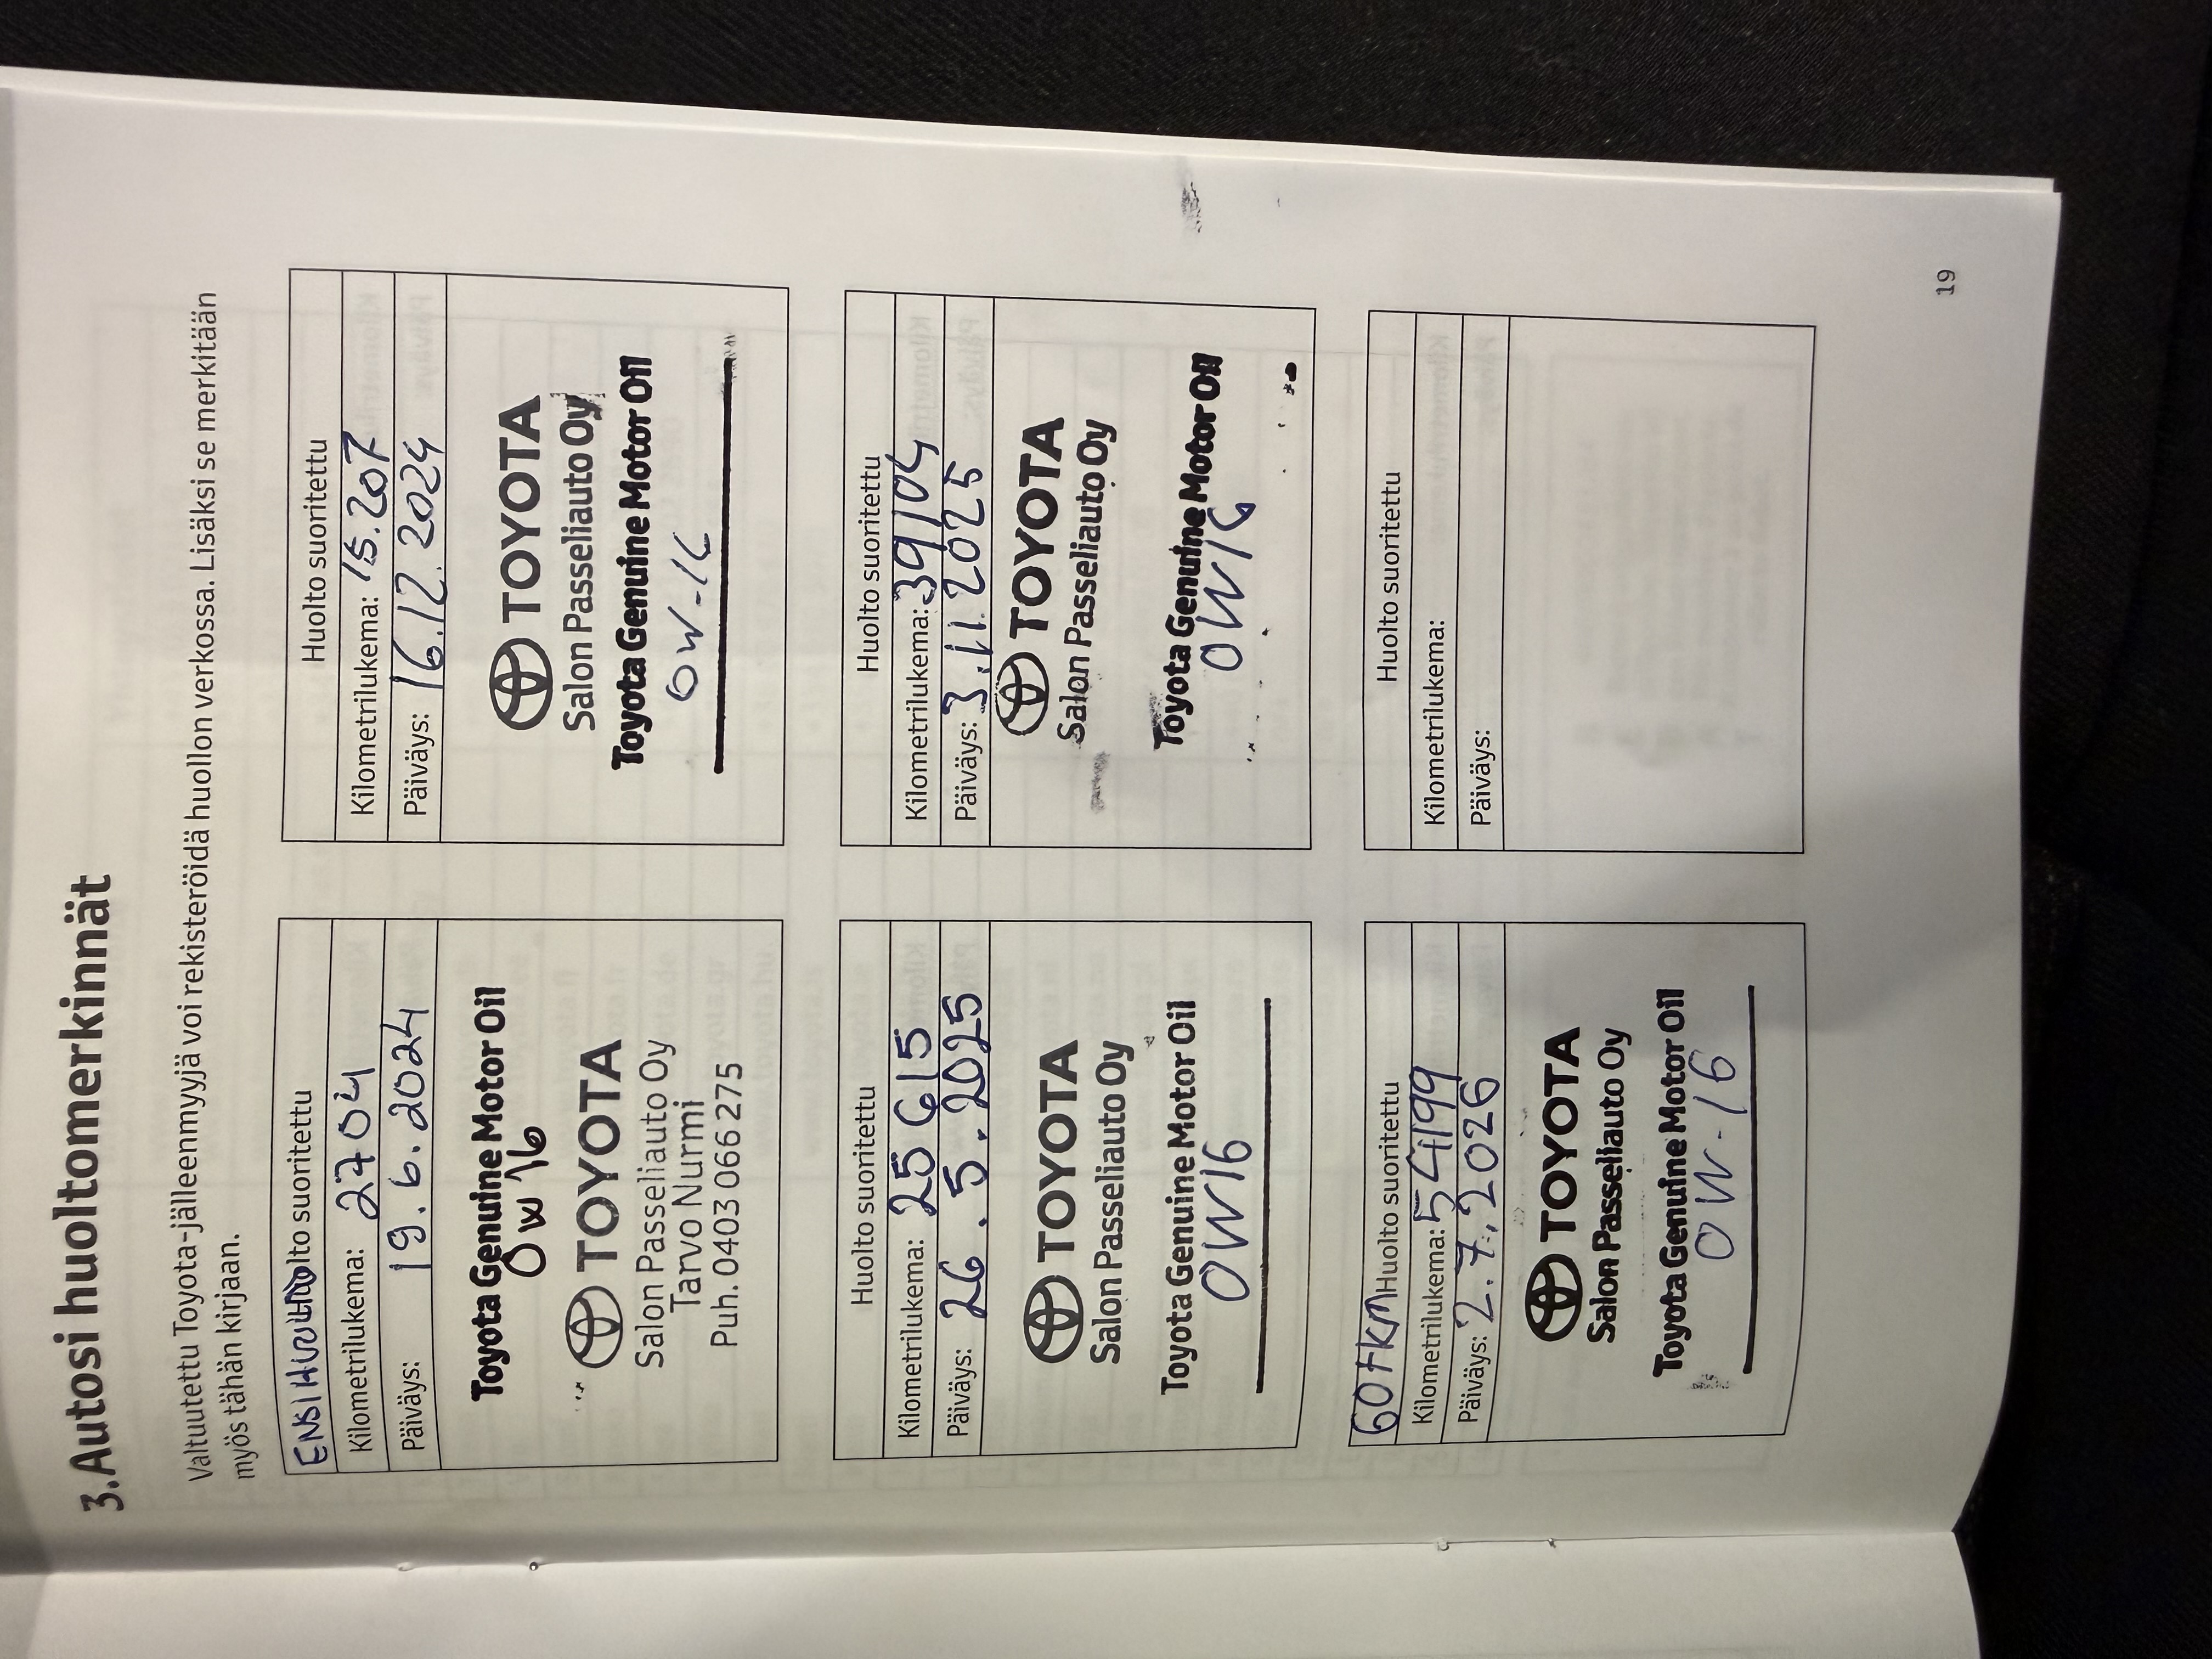 3.Autosi huoltomerkinnät
Valtuutettu Toyota-jälleenmyyjä voi rekisteröidä huollon verkossa. Lisäksi se merkitään
myös tähän kirjaan.
ENSIHUOLTO Huolto suoritettu
Kilometrilukema: 2704
Päiväys: 19.6.2024
Toyota Genuine Motor Oil
0W16
TOYOTA
Salon Passeliauto Oy
Tarvo Nurmi
Puh. 0403 066 275
Huolto suoritettu
Kilometrilukema: 15.207
Päiväys: 16.12.2024
TOYOTA
Salon Passeliauto Oy
Toyota Genuine Motor Oil
0W-16
Huolto suoritettu
Kilometrilukema: 25615
Päiväys: 26.5.2025
TOYOTA
Salon Passeliauto Oy
Toyota Genuine Motor Oil
0W16
Huolto suoritettu
Kilometrilukema: 39104
Päiväys: 3.11.2025
TOYOTA
Salon Passeliauto Oy
Toyota Genuine Motor Oil
0W16
60tkm Huolto suoritettu
Kilometrilukema: 54199
Päiväys: 2.7.2026
TOYOTA
Salon Passeliauto Oy
Toyota Genuine Motor Oil
0W-16
Huolto suoritettu
Kilometrilukema:
Päiväys:
19